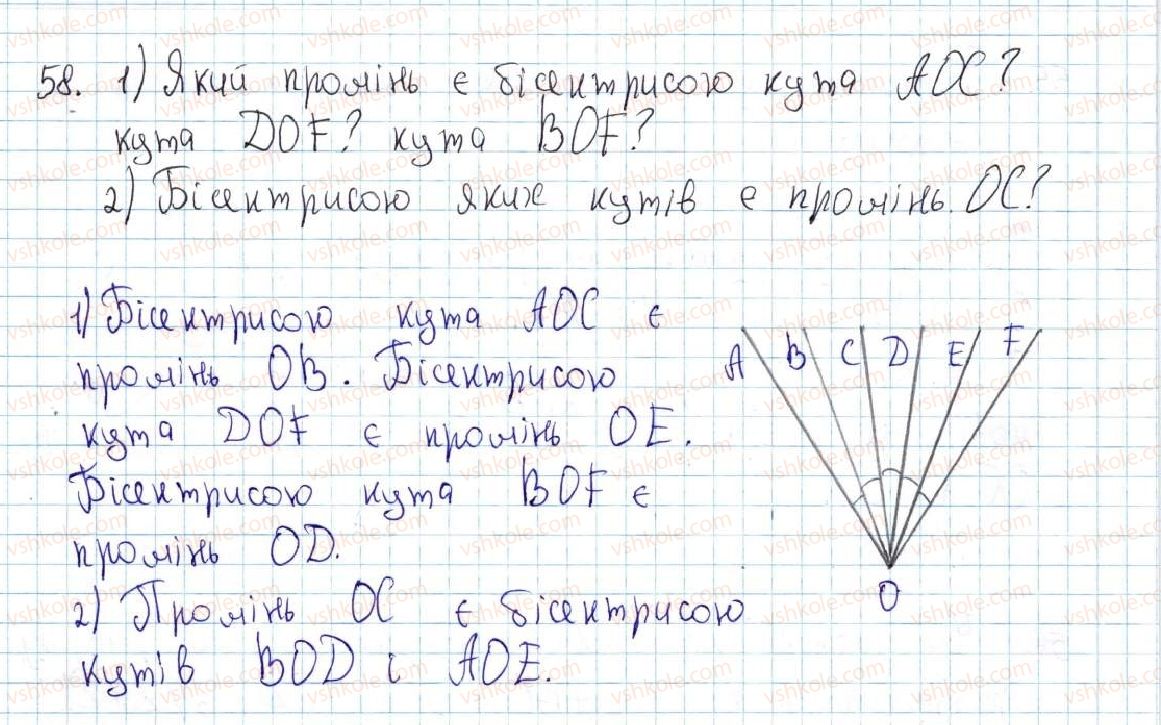 58. 1) Який промінь є бісектрисою кута AOC?
кута DOF? кута BOF?
2) Бісектрисою яких кутів є промінь OC?
1) Бісектрисою кута AOC є
промінь OB. Бісектрисою
кута DOF є промінь OE.
Бісектрисою кута BOF є
промінь OD.
2) Промінь OC є бісектрисою
кутів BOD і AOE.
A B C D E F
O
vshkole.com